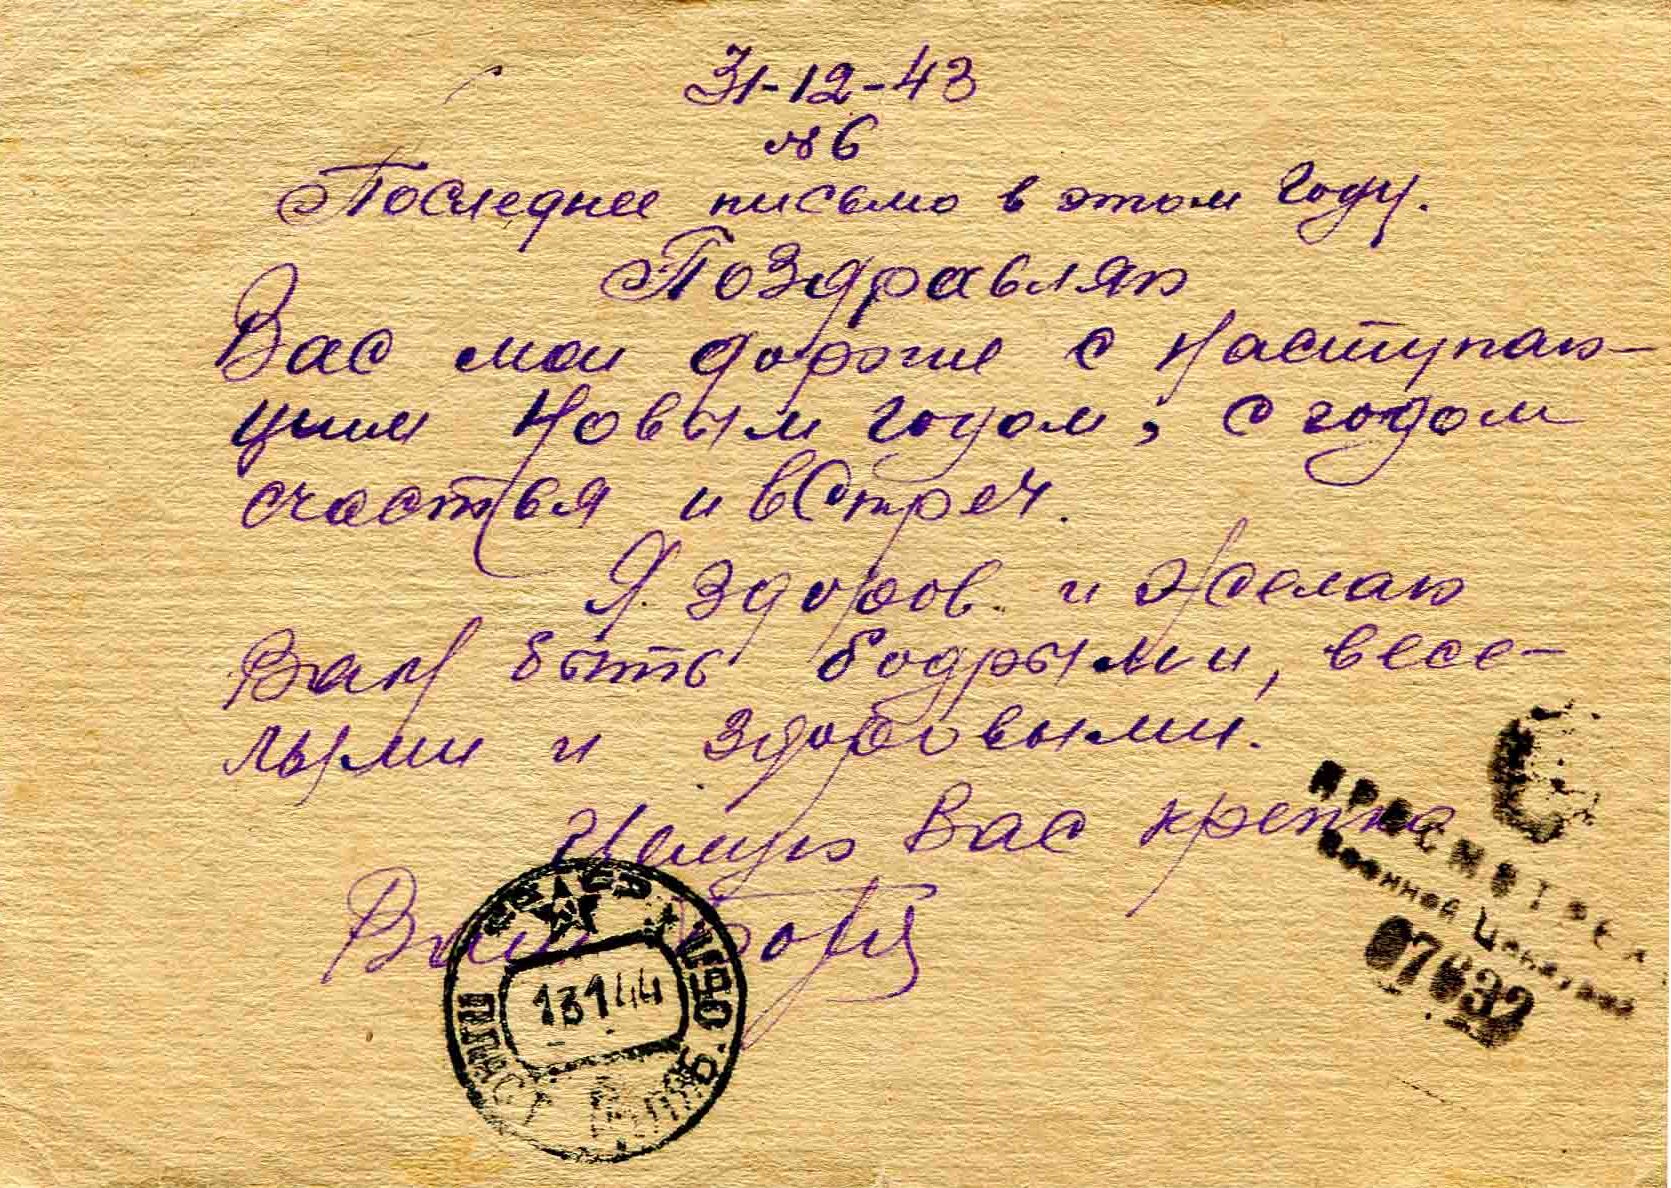 31-12-43
№6
Последнее письмо в этом году.
Поздравляю
Вас мои дорогие с наступаю-
щим Новым годом, с годом
счастья и встреч.
Я здоров и желаю
Вам быть бодрыми, весе-
лыми и здоровыми.
Целую Вас крепко
Ваш Боря
ПРОСМОТРЕНО
Военной Цензурой
07632
13 1 44